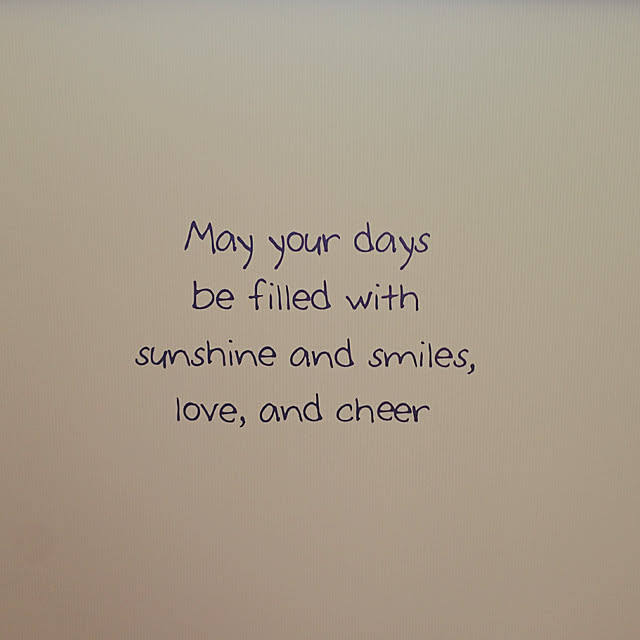 May your days
be filled with
sunshine and smiles,
love, and cheer